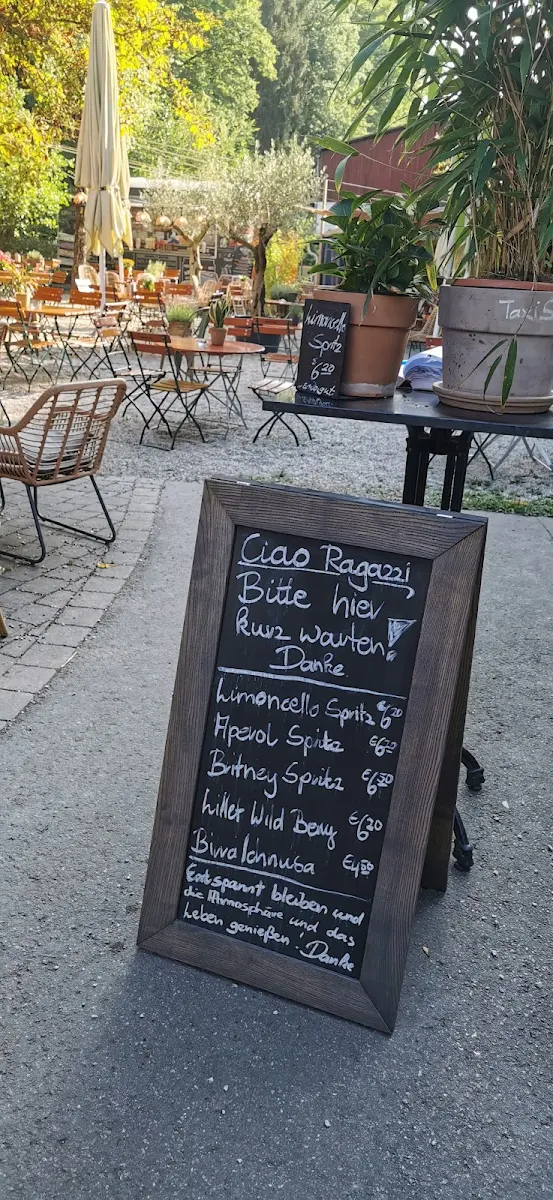 Limoncello
Spritz
€6,20
TaxiS
Ciao Ragazzi,
Bitte hier
kurz warten!
Danke.
Limoncello Spritz €6,20
Aperol Spritz €6,20
Britney Spritz €6,20
Lillet Wild Berry €6,20
Birra Ichnusa €4,50
Entspannt bleiben und
die Atmosphäre und das
Leben genießen! Danke